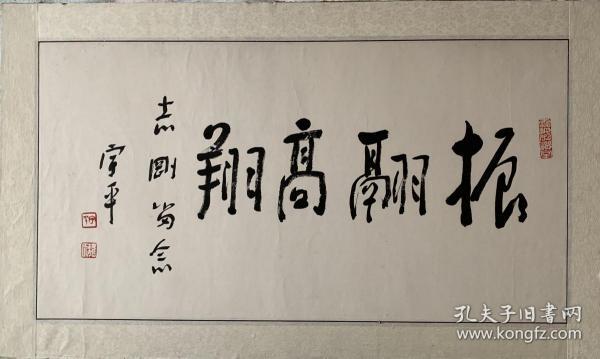 振翮高翔
志刚留念
宇平
孔夫子旧书网
www.kongfz.com